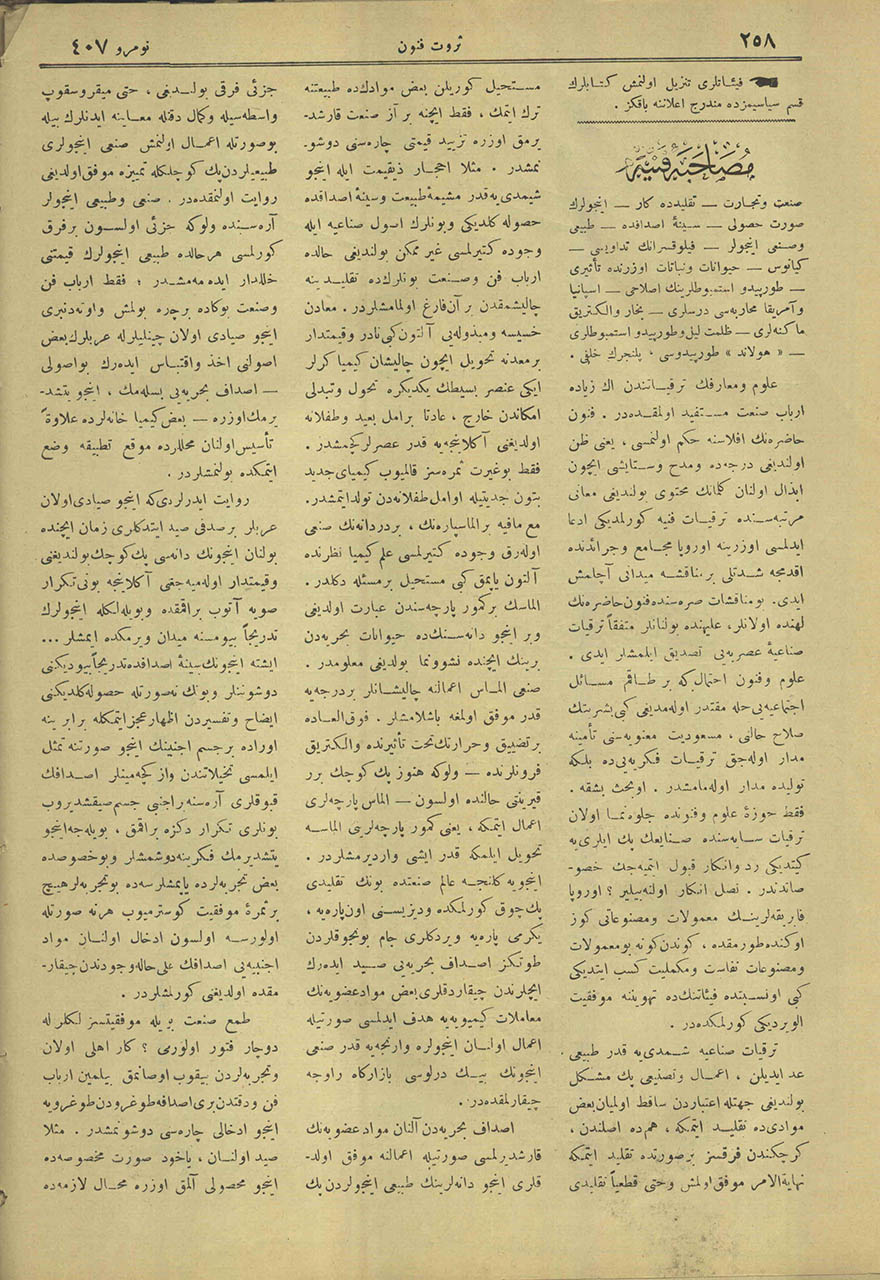 ٢٥٨
ثروت فنون
نومرو ٤٠٧
فیئاتلری تنزیل اولنمش كتابلرك
قسم سیاسیمزده مندرج اعلاننه باقكز.
مصاحبۀ فنیه
صنعت وتجارت — تقلیدده كار — اینجولرك
صورت حصولی — سینۀ اصدافده — طبیعی
وصنعی اینجولر — فیلوقسرانك تداویسی —
كیانوس — حیوانات ونباتات اوزرنده تأثیری
— طورپیدو استمبوطلرینك اصلاحی — اسپانیا
وآمریقا محاربه‌سی درسلری — بخار والكتریق
ماكنه‌لری — ظلمت لیل وطورپیدو استمبوطلری
— « هولاند » طورپیدوسی ، پلنجرك خلفی .
علوم ومعارفك ترقیاتندن اك زیاده
ارباب صنعت مستفید اولمقده‌در . فنون
حاضره‌نك افلاسنه حكم اولنمسی ، یعنی ظن
اولندیغی درجه‌ده ومدح وستایشی ایچون
ابذال اولنان كلماتك محتوی بولندیغی معانی
مرتبه‌سنده ترقیات فنیه كورلمدیكی ادعا
ایدلمسی اوزرینه اوروپا مجامع وجرائدنده
اقدمجه شدتلی برمناقشه میدانی آچلمش
ایدی. بومناقشات صره‌سنده فنون حاضره‌نك
لهنده اولانلر، علیهنده بولنانلر متفقاً ترقیات
صناعیۀ عصریه‌یی تصدیق ایلمشلر ایدی .
علوم وفنون احتمال كه بر طاقم مسائل
اجتماعیه‌یی حله مقتدر اوله‌مدیغی كبی بشریتك
صلاح حالنی ، مسعودیت معنویه‌سنی تأمینه
مدار اوله‌جق ترقیات فكریه‌یی‌ده بلكه
تولیده مدار اوله‌مامشدر . اوبحث بشقه .
فقط حوزۀ علوم وفنونده جلوه‌نما اولان
ترقیات سایه‌سنده صنایعك پك ایلری‌یه
كیتدیكی رد وانكار قبول ایتمیه‌جك خصو-
صاتدندر . نصل انكار اولنه‌بیلیر ؟ اوروپا
فابریقه‌لرینك معمولات ومصنوعاتی كوز
اوكنده طورمقده ، كوندن كونه بومعمولات
ومصنوعات نفاست ومكملیت كسب ایتدیكی
كبی اونسبتده فیئاتنك‌ده تهویننه موفقیت
الویردیكی كورلمكده‌در .
ترقیات صناعیه شمدی‌یه قدر طبیعی
عد ایدیلن ، اعمال وتصنیعی پك مشكل
بولندیغی جهتله اعتباردن ساقط اولمیان بعض
موادی‌ده تقلید ایتمكه ، هم‌ده اصلندن ،
كرچكندن فرقسز برصورتده تقلید ایتمكه
نهایةالامر موفق اولمش وحتی قطعیاً تقلیدی
مستحیل كوریلن بعض موادك‌ده طبیعتنه
ترك ایتمك ، فقط ایچنه برآز صنعت قارشد-
یرمق اوزره تزیید قیمتی چاره‌سنی دوشو-
نمشدر . مثلا احجار ذیقیمت ایله اینجو
شیمدی‌یه‌قدر مشیمۀ طبیعت وسینۀ اصدافده
حصوله كلدیكی وبونلرك اسول صناعیه ایله
وجوده كتیرلمسی غیر ممكن بولندیغی حالده
ارباب فن وصنعت بونلرك‌ده تقلیدینه
چالیشمقدن برآن فارغ اولمامشلردر . معادن
خسیسه ومبذوله‌یی آلتون كبی نادر وقیمتدار
برمعدنه تحویل ایچون چالیشان كیمیاكرلر
ایكی عنصر بسیطك یكدیكره تحول وتبدلی
امكاندن خارج ، عادتا برامل بعید وطفلانه
اولدیغنی آكلاینجه‌یه قدر عصرلركچمشدر .
فقط بوغیرت ثمره‌سز قالمیوب كیمیای جدید
بتون جدیتیله اوامل طفلانه‌دن تولد ایتمشدر.
مع مافیه برالماسپاره‌نك ، بردردانه‌نك صنعی
اوله‌رق وجوده كتیرلمسی علم كیمیا نظرنده
آلتون یاپمق كبی مستحیل برمسئله دكلدر .
الماسك بركمور پارچه‌سندن عبارت اولدیغی
وبر اینجو دانه‌سنك‌ده حیوانات بحریه‌دن
برینك ایچنده نشوونما بولدیغی معلومدر .
صنعی الماس اعمالنه چالیشانلر بردرجه‌یه
قدر موفق اولمغه باشلامشلر . فوق‌العاده
برتضییق وحرارتك تحت تأثیرنده والكتریق
فرونلرنده — ولوكه هنوز پك كوچك برر
قیرینتی حالنده اولسون — الماس پارچه‌لری
اعمال ایتمكه ، یعنی كمور پارچه‌لرینی الماسه
تحویل ایلمكه قدر ایشی واردیرمشلردر .
اینجویه كلنجه عالم صنعتده بونك تقلیدی
پك چوق كورلمكده ودیزیسنی اون پاره‌یه ،
یكرمی پاره‌یه ویردكلری جام بونجوقلردن
طوتكز اصداف بحریه‌یی صید ایده‌رك
ایچلرندن چیقاردقلری بعض مواد عضویه‌نك
معاملات كیمیویه‌یه هدف ایدلمسی صورتیله
اعمال اولنان اینجولره وارنجه‌یه قدر صنعی
اینجونك بیك درلوسی بازاركاه رواجه
چیقارلمقده‌در .
اصداف بحریه‌دن آلنان مواد عضویه‌نك
قارشدیرلمسی صورتیله اعمالنه موفق اولد-
قلری اینجو دانه‌لرینك طبیعی اینجولردن پك
جزئی فرقی بولندیغی ، حتی میقروسقوپ
واسطه‌سیله وكمال دقتله معاینه ایدنلرك بیله
بوصورتله اعمال اولنمش صنعی اینجولری
طبیعیلردن پك كوجلكله تمییزه موفق اولدیغی
روایت اولنمقده‌در . صنعی وطبیعی اینجولر
آره‌سنده ولوكه جزئی اولسون برفرق
كورلمسی هرحالده طبیعی اینجولرك قیمتنی
خللدار ایده‌مه‌مشدر ؛ فقط ارباب فن
وصنعت بوكاده برچره بولمش واوته‌دنبری
اینجو صیادی اولان چینلیلرله عربلرك بعض
اصولنی اخذ واقتباس ایده‌رك بواصولی
— اصداف بحریه‌یی بسله‌مك ، اینجو یتشد-
یرمك اوزره — بعض كیمیا خانه‌لرده علاوةً
تأسیس اولنان محللرده موقع تطبیقه وضع
ایتمكده بولنمشلردر .
روایت ایدرلردی كه اینجو صیادی اولان
عربلر برصدفی صید ایتدكلری زمان ایچنده
بولنان اینجونك دانه‌سی پك كوچك بولندیغنی
وقیمتدار اوله‌میه‌جغنی آكلاینجه بونی تكرار
صویه آتوب براقمقده وبویله‌لكله اینجولرك
تدریجاً بیومسنه میدان ویرمكده ایمشلر ...
ایشته اینجونك سینۀ اصدافده تدریجاً بیودیكنی
دوشوننلر وبونك نه‌صورتله حصوله كلدیكنی
ایضاح وتفسیردن اظهار عجز ایتمكله برابر ینه
اوراده برجسم اجنبینك اینجو صورتنه تمثل
ایلمسی تخیلاتندن وازكچه‌مینلر اصدافك
قبوقلری آره‌سنه راجنبی جسم صیقشدیروب
بونلری تكرار دكزه براقمق ، بویله‌جه اینجو
یتشدیرمك فكرینه دوشمشلر وبوخصوصده
بعض تجربه‌لرده یاپمشلرسه‌ده بوتجربه‌لرهیچ
برثمرۀ موفقیت كوسترمیوب هرنه صورتله
اولورسه اولسون ادخال اولنان مواد
اجنبیه‌یی اصدافك علی‌حاله وجودندن چیقار-
مقده اولدیغی كورلمشلردر .
طمع صنعت بویله موفقیتسزلكلر له
دوچار فتور اولورمی ؟ كار اهلی اولان
وتجربه‌لردن بیقوب اوصانمق بیلمین ارباب
فن ودقتدن بری اصدافه طوغرودن طوغرویه
اینجو ادخالی چاره‌سی دوشونمشدر . مثلا
صید اولنان ، یاخود صورت مخصوصه‌ده
اینجو محصولی آلمق اوزره محال لازمه‌ده